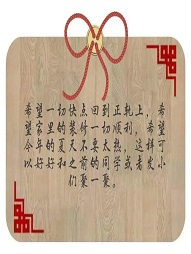 希望一切快点回到正轨上，希
望家里的装付一切顺利，希望
今年的夏天不要太热，这
以好好和之前的同学或者发小
们聚一聚。